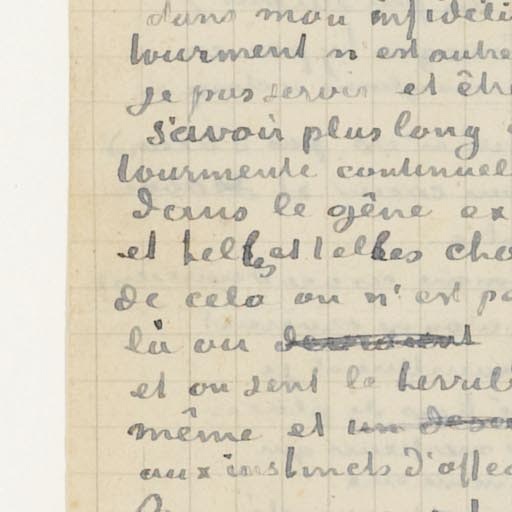 dans mon infidéli
tourment n'est autre
je puis servir et êtr
s'avoir plus long
tourmente continuel
dans le gêne ex
et telles et telles cho
de cela on n'est pa
là ou
et on sent la terribl
même et un
aux instincts d'affec